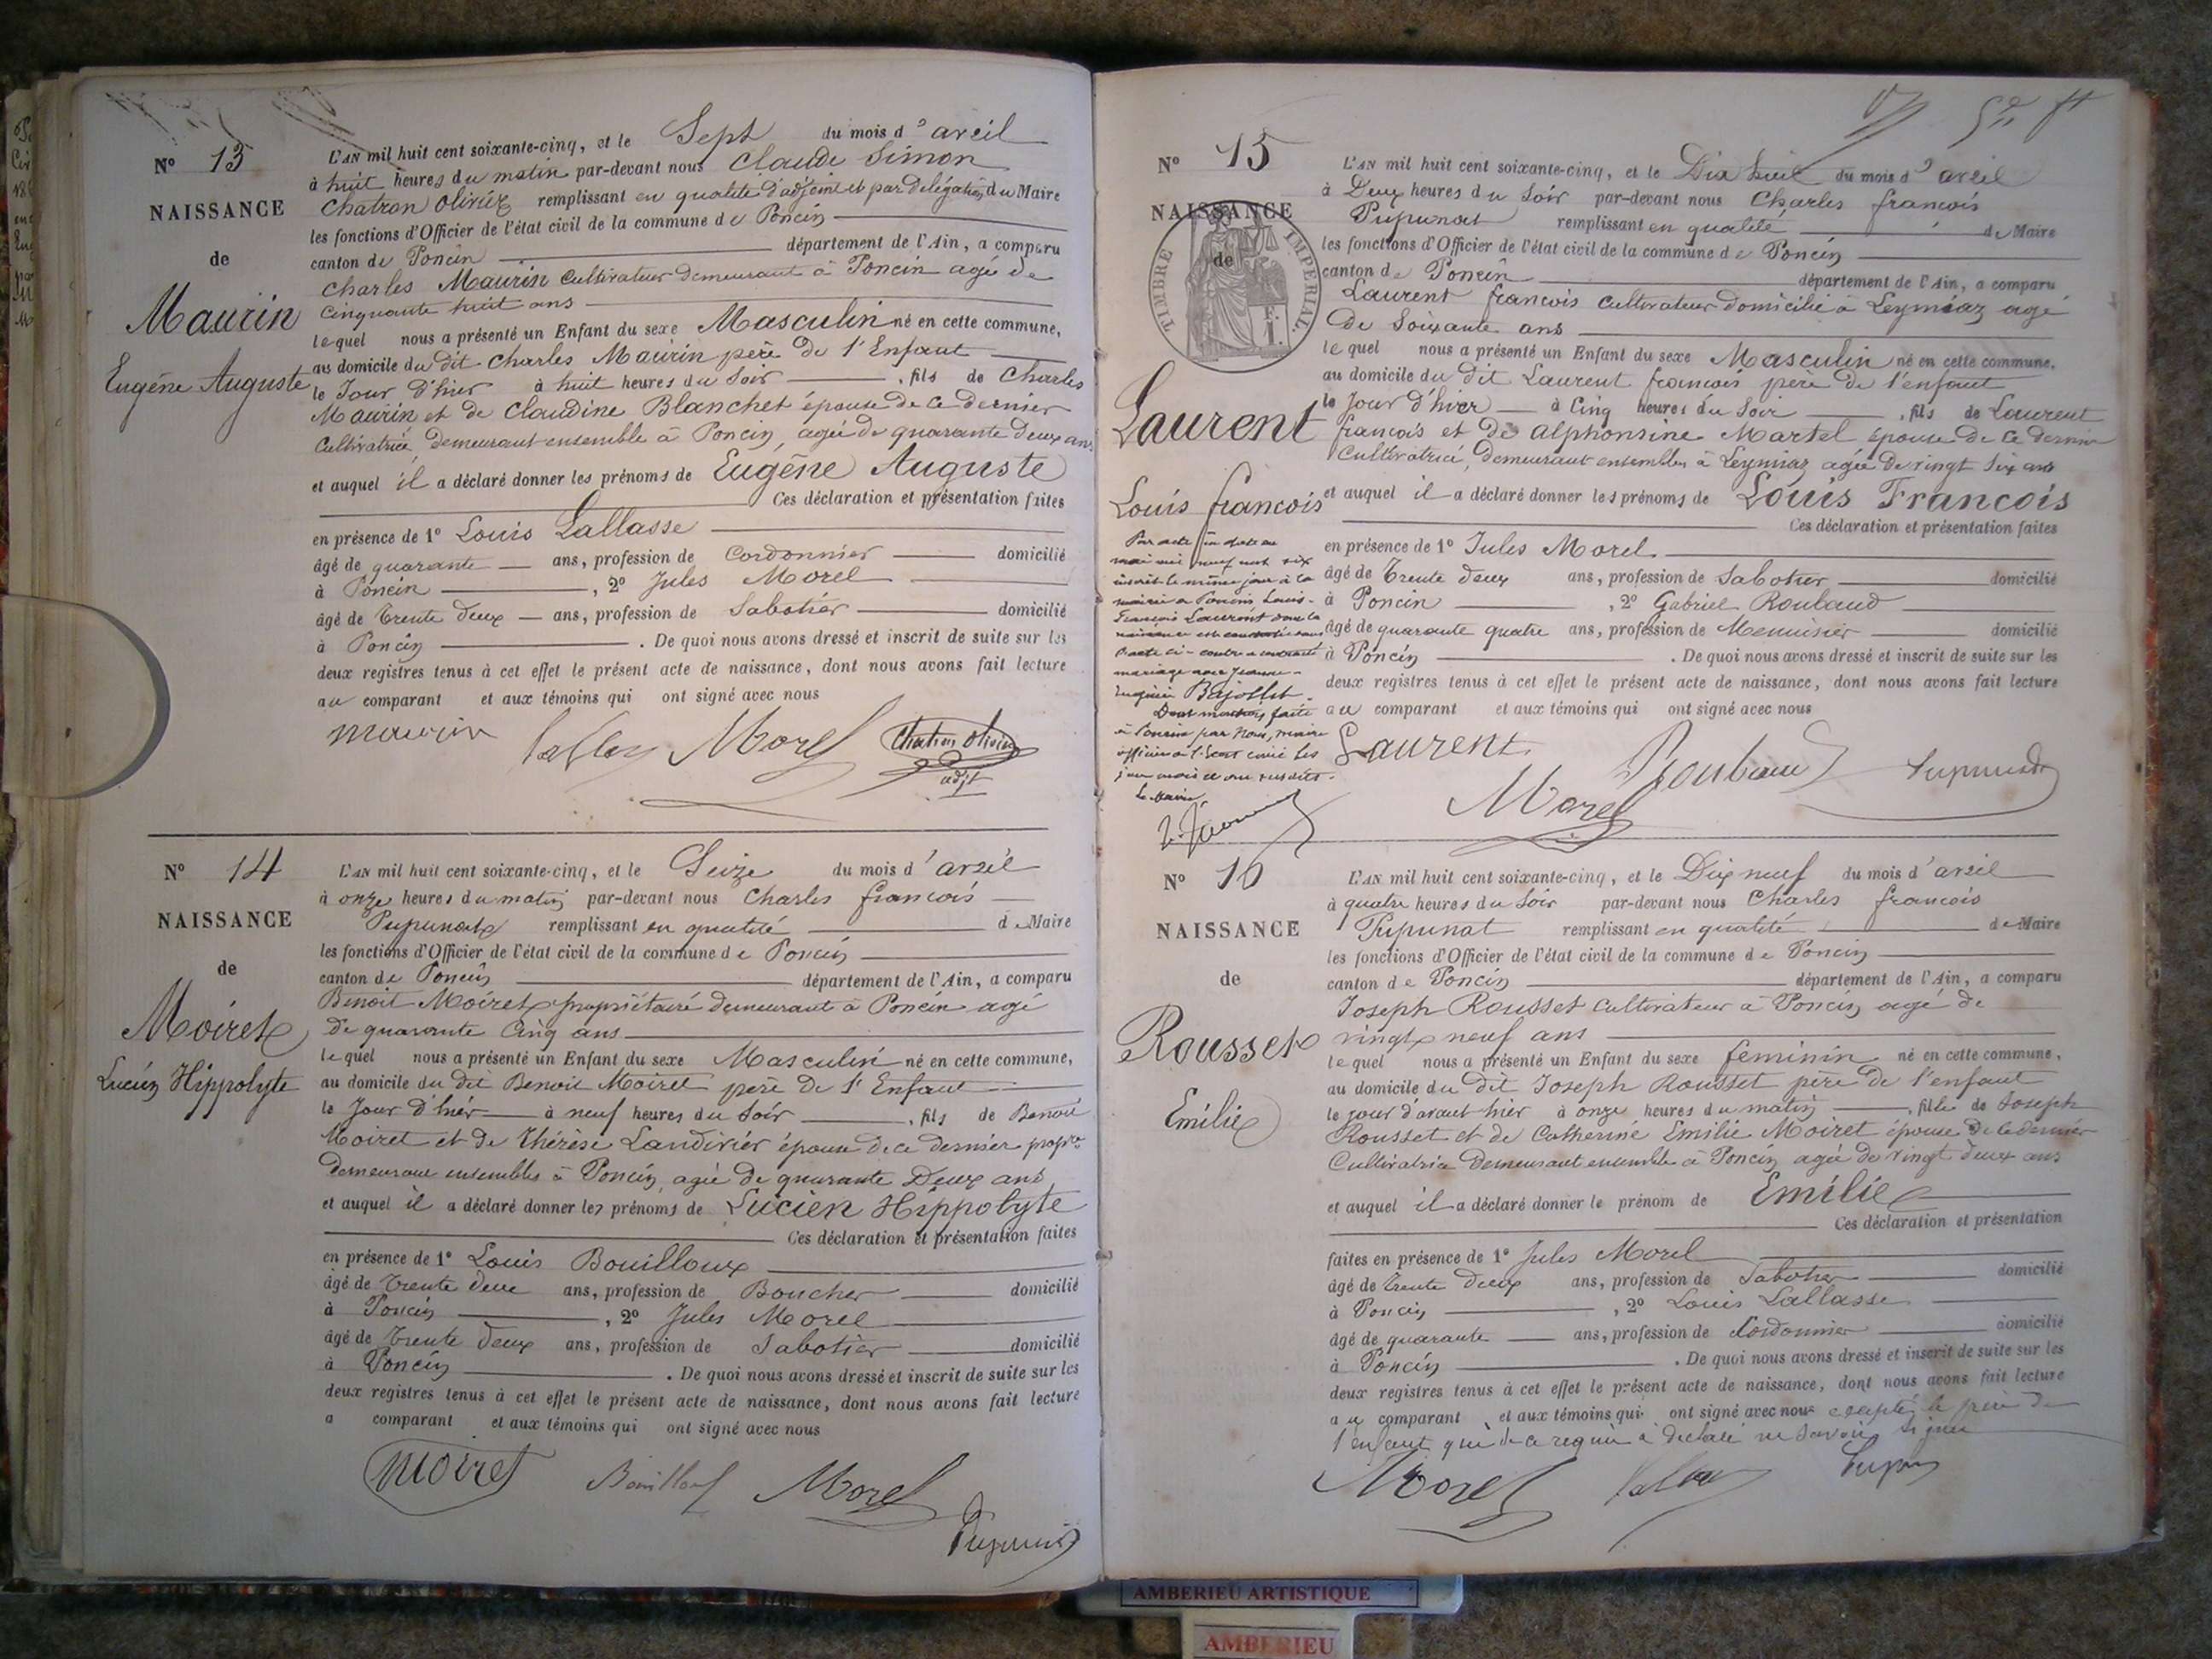 N° 13
NAISSANCE
de
Maurin
Eugéne Auguste
L'AN mil huit cent soixante-cinq, et le Sept du mois d'avril
à huit heures du matin par-devant nous Claude Simon
Chatron Olivier remplissant en qualité d'adjoint et par délégation du Maire
les fonctions d'Officier de l'état civil de la commune de Poncin
canton de Poncin département de l'Ain, a comparu
Charles Maurin Cultivateur demeurant à Poncin agé de
Cinquante huit ans
lequel nous a présenté un Enfant du sexe Masculin né en cette commune,
au domicile du dit Charles Maurin père de l'Enfant
le Jour d'hier à huit heures du Soir , fils de Charles
Maurin et de Claudine Blanchet épouse de ce dernier
Cultivatrice, demeurant ensemble à Poncin, agée de quarante deux ans
et auquel il a déclaré donner les prénoms de Eugéne Auguste
Ces déclaration et présentation faites
en présence de 1° Louis Lallasse
âgé de quarante ans, profession de Cordonnier domicilié
à Poncin , 2° Jules Morel
âgé de trente deux ans, profession de Sabotier domicilié
à Poncin . De quoi nous avons dressé et inscrit de suite sur les
deux registres tenus à cet effet le présent acte de naissance, dont nous avons fait lecture
au comparant et aux témoins qui ont signé avec nous
maurin Morel Chatron Olivier
adjt
N° 14
NAISSANCE
de
Moiret
Lucien Hippolyte
L'AN mil huit cent soixante-cinq, et le Seize du mois d'avril
à onze heures du matin par-devant nous Charles francois
Pupunat remplissant en qualité de Maire
les fonctions d'Officier de l'état civil de la commune de Poncin
canton de Poncin département de l'Ain, a comparu
Benoit Moiret propriétaire demeurant à Poncin agé
de quarante Cinq ans
lequel nous a présenté un Enfant du sexe Masculin né en cette commune,
au domicile du dit Benoit Moiret père de l'Enfant
le Jour d'hier à neuf heures du Soir , fils de Benoit
Moiret et de Thérèse Landirier épouse de ce dernier propre
demeurant ensembles à Poncin, agée de quarante Deux ans
et auquel il a déclaré donner les prénoms de Lucien Hippolyte
Ces déclaration et présentation faites
en présence de 1° Louis Bouilloux
âgé de trente deux ans, profession de Boucher domicilié
à Poncin , 2° Jules Morel
âgé de trente deux ans, profession de Sabotier domicilié
à Poncin . De quoi nous avons dressé et inscrit de suite sur les
deux registres tenus à cet effet le présent acte de naissance, dont nous avons fait lecture
a comparant et aux témoins qui ont signé avec nous
moiret Morel
N° 15
NAISSANCE
de
TIMBRE IMPERIAL
Laurent
Louis francois
Par acte en date du
inscrit le même jour à la
mairie de Poncin, Louis-
François Laurent dont la
naissance est constatée dans
l'acte ci-contre a contracté
mariage avec Jeanne-
Bajollet.
Dont mention faite
à Poncin par nous, maire
officier de l'état civil les
jour mois et an susdits.
Le Maire
L'AN mil huit cent soixante-cinq, et le Dix huit du mois d'avril
à Deux heures du Soir par-devant nous Charles francois
Pupunat remplissant en qualité de Maire
les fonctions d'Officier de l'état civil de la commune de Poncin
canton de Poncin département de l'Ain, a comparu
Laurent francois Cultivateur domicilié à Leymiaz agé
de Soixante ans
lequel nous a présenté un Enfant du sexe Masculin né en cette commune,
au domicile du dit Laurent francois père de l'enfant
le Jour d'hier à Cinq heures du Soir , fils de Laurent
francois et de alphonsine Martel épouse de ce dernier
Cultivatrice, demeurant ensembles à Leymiaz agée de vingt Six ans
et auquel il a déclaré donner les prénoms de Louis Francois
Ces déclaration et présentation faites
en présence de 1° Jules Morel
âgé de trente deux ans, profession de Sabotier domicilié
à Poncin , 2° Gabriel Roubaud
âgé de quarante quatre ans, profession de Menuisier domicilié
à Poncin . De quoi nous avons dressé et inscrit de suite sur les
deux registres tenus à cet effet le présent acte de naissance, dont nous avons fait lecture
au comparant et aux témoins qui ont signé avec nous
Laurent Roubaud
Morel
N° 16
NAISSANCE
de
Rousset
Emilie
L'AN mil huit cent soixante-cinq, et le Dix neuf du mois d'avril
à quatre heures du Soir par-devant nous Charles francois
Pupunat remplissant en qualité de Maire
les fonctions d'Officier de l'état civil de la commune de Poncin
canton de Poncin département de l'Ain, a comparu
Joseph Rousset Cultivateur à Poncin agé de
vingt neuf ans
lequel nous a présenté un Enfant du sexe feminin né en cette commune,
au domicile du dit Joseph Rousset père de l'enfant
le jour d'avant hier à onze heures du matin , fille de Joseph
Rousset et de Catherine Emilie Moiret épouse de ce dernier
Cultivatrice demeurant ensemble à Poncin agée de vingt deux ans
et auquel il a déclaré donner le prénom de Emilie
Ces déclaration et présentation
faites en présence de 1° Jules Morel
âgé de trente deux ans, profession de Sabotier domicilié
à Poncin , 2° Louis Lallasse
âgé de quarante ans, profession de Cordonnier domicilié
à Poncin . De quoi nous avons dressé et inscrit de suite sur les
deux registres tenus à cet effet le présent acte de naissance, dont nous avons fait lecture
au comparant et aux témoins qui ont signé avec nous excepté le père de
l'enfant qui de ce requis a déclaré ne savoir signer
Morel
AMBERIEU ARTISTIQUE
AMBERIEU